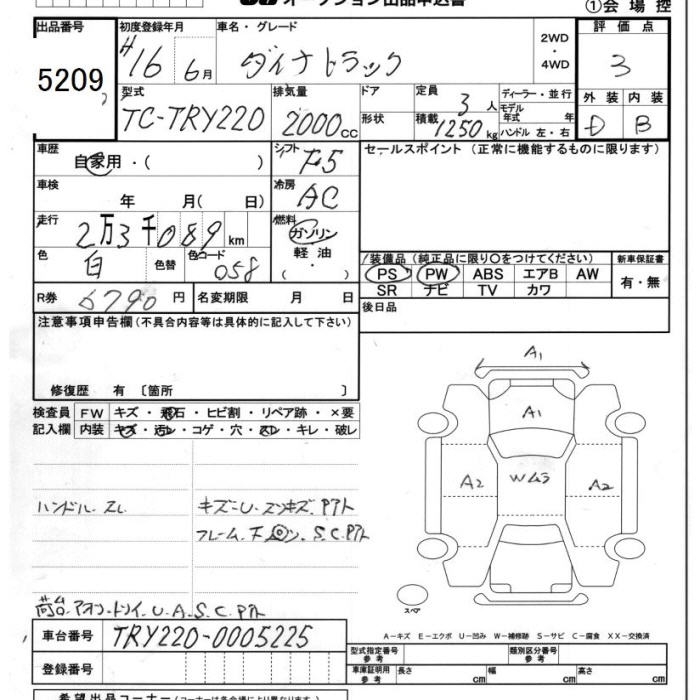 オークション出品申込書
①会場控
出品番号 初度登録年月 車名・グレード 2WD・4WD 評価点
5209 H16 6月 ダイナトラック 3
型式 排気量 ドア 定員 3人 ディーラー・並行
形状 積載 1250kg モデル年式 年 外装 内装
TC-TRY220 2000cc ハンドル 左・右 D B
車歴 シフト セールスポイント(正常に機能するものに限ります)
自家用・( ) F5
車検 冷房
年 月( 日) AC
走行 燃料
2万3千089km ガソリン
色 白 色替 色コード 058 軽油・( )
装備品(純正品に限り○をつけてください) 新車保証書
PS PW ABS エアB AW 有・無
SR ナビ TV カワ
R券 6790円 名変期限 月 日 後日品
注意事項申告欄(不具合内容等は具体的に記入して下さい)
修復歴 有 〔箇所 〕
検査員 FW キズ・飛石・ヒビ割・リペア跡・×要
記入欄 内装 キズ・汚レ・コゲ・穴・スレ・キレ・破レ
ハンドル.スレ キズ=U.スンキズ.Pアト
S.C.Pアト
U.A.S.C.Pアト
A1
A1
A2 Wムラ A2
スペア
A-キズ E-エクボ U-凹み W-補修跡 S-サビ C-腐食 XX-交換済
車台番号 TRY220-0005225
登録番号
型式指定番号 参考 類別区分番号 参考
車庫証明用 参考 長さ cm 幅 cm 高さ cm
希望出品コーナー(コーナーは各会場により異なります)